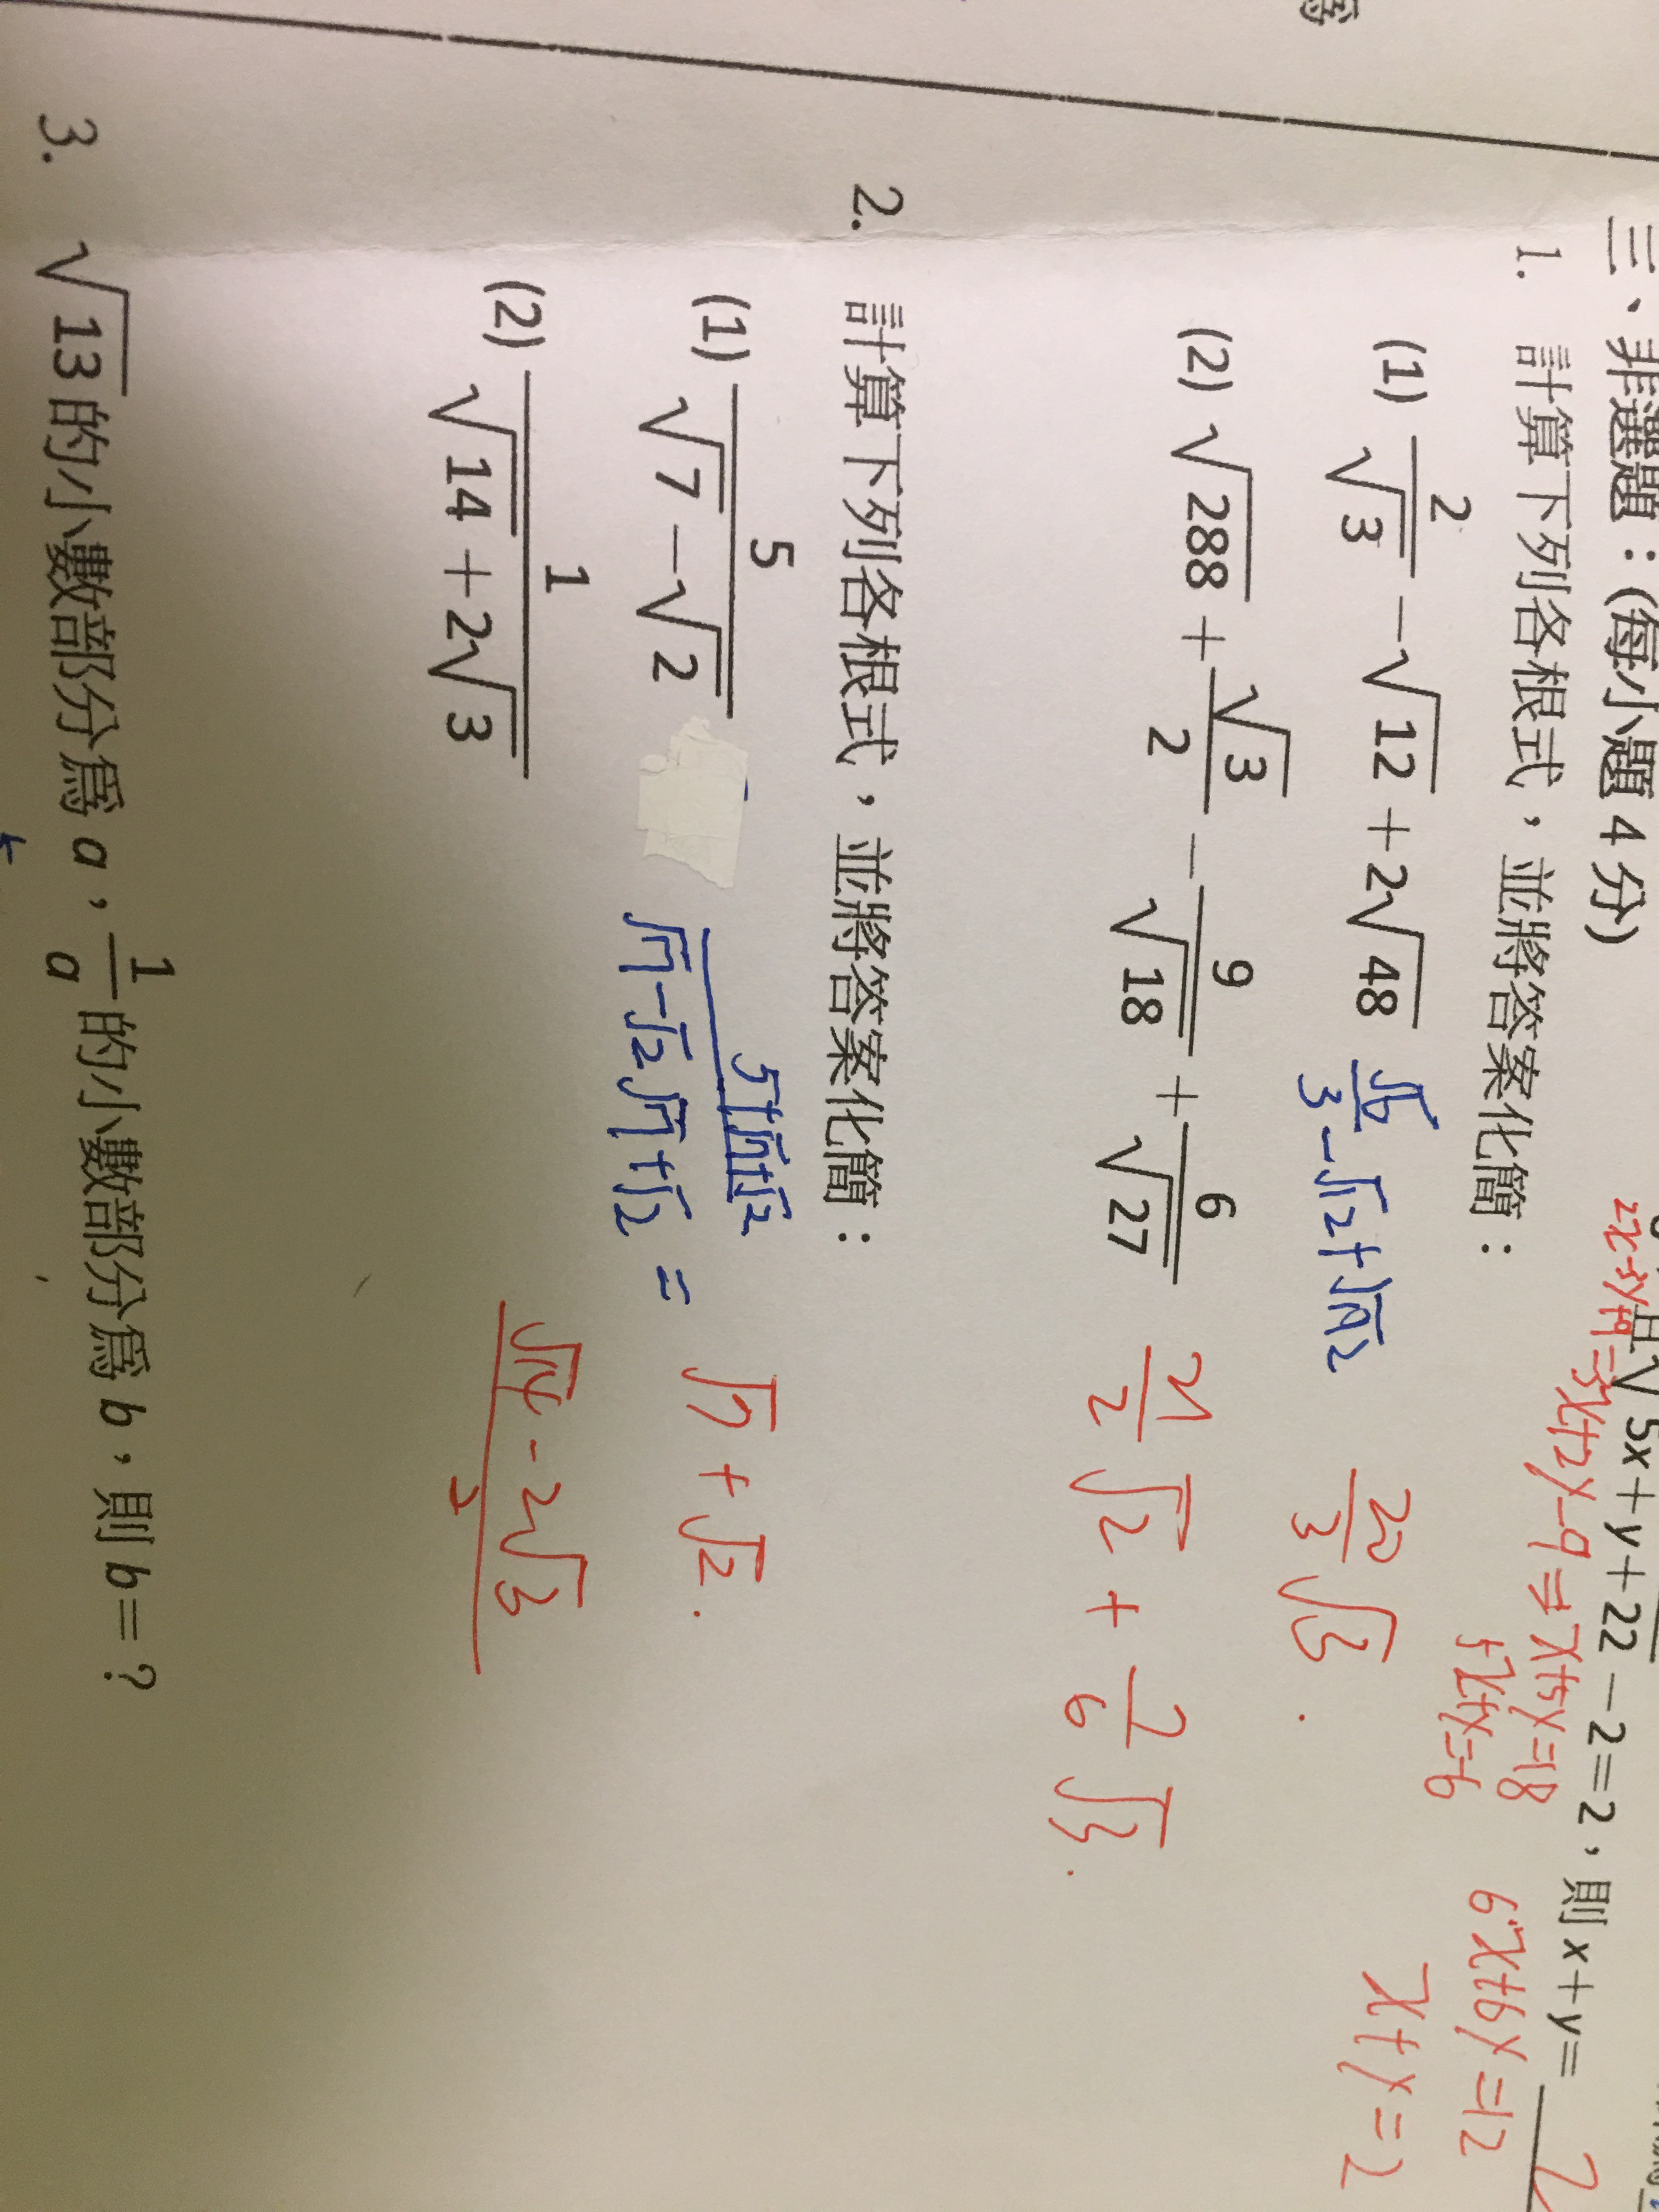 且√5x+y+22 -2=2,則x+y= 2
2x-3y+9=3x+2y-9 ⇒ x+5y=18
5x+y=-6
6x+6y=12
x+y=2
三、非選題:(每小題4分)
1. 計算下列各根式,並將答案化簡:
(1) 2/√3 - √12 + 2√48 √6/3 - √12 + √192 20/3 √3.
(2) √288 + √3/2 - 9/√18 + 6/√27 21/2 √2 + 7/6 √3.
2. 計算下列各根式,並將答案化簡:
(1) 5/(√7-√2) 5+√7+√2/√7-√2√7+√2 = √7+√2.
(2) 1/(√14+2√3) (√14-2√3)/2
3. √13的小數部分為a,1/a的小數部分為b,則b=?